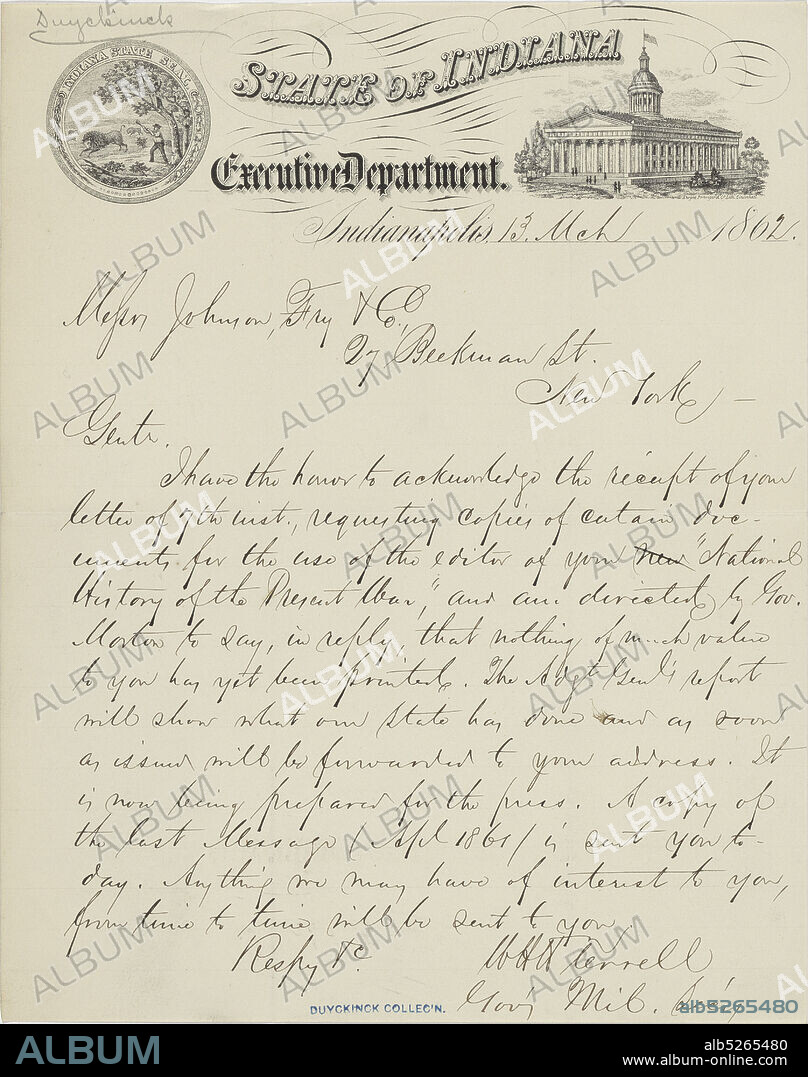 Duyckinck
INDIANA STATE SEAL
STATE OF INDIANA
Executive Department.
Indianapolis, 13. Mch 1862.
Messrs Johnson, Fry & Co.
27 Beekman St.
New York —
Gentn.
I have the honor to acknowledge the receipt of your
letter of 7th inst., requesting copies of certain doc-
uments for the use of the editor of your new "National
History of the Present War," and am directed by Gov.
Morton to say, in reply, that nothing of much value
to you has yet been printed. The Adjt Genl's report
will show what our State has done and as soon
as issued will be forwarded to your address. It
is now being prepared for the press. A copy of
the last Message (Apl 1861) is sent you to-
day. Anything we may have of interest to you,
from time to time will be sent to you.
Respy &c.
WHH Terrell
Govs Mil. Secy
DUYCKINCK COLLEC'N.
ALBUM
alb5265480
ALBUM
alb5265480
www.album-online.com